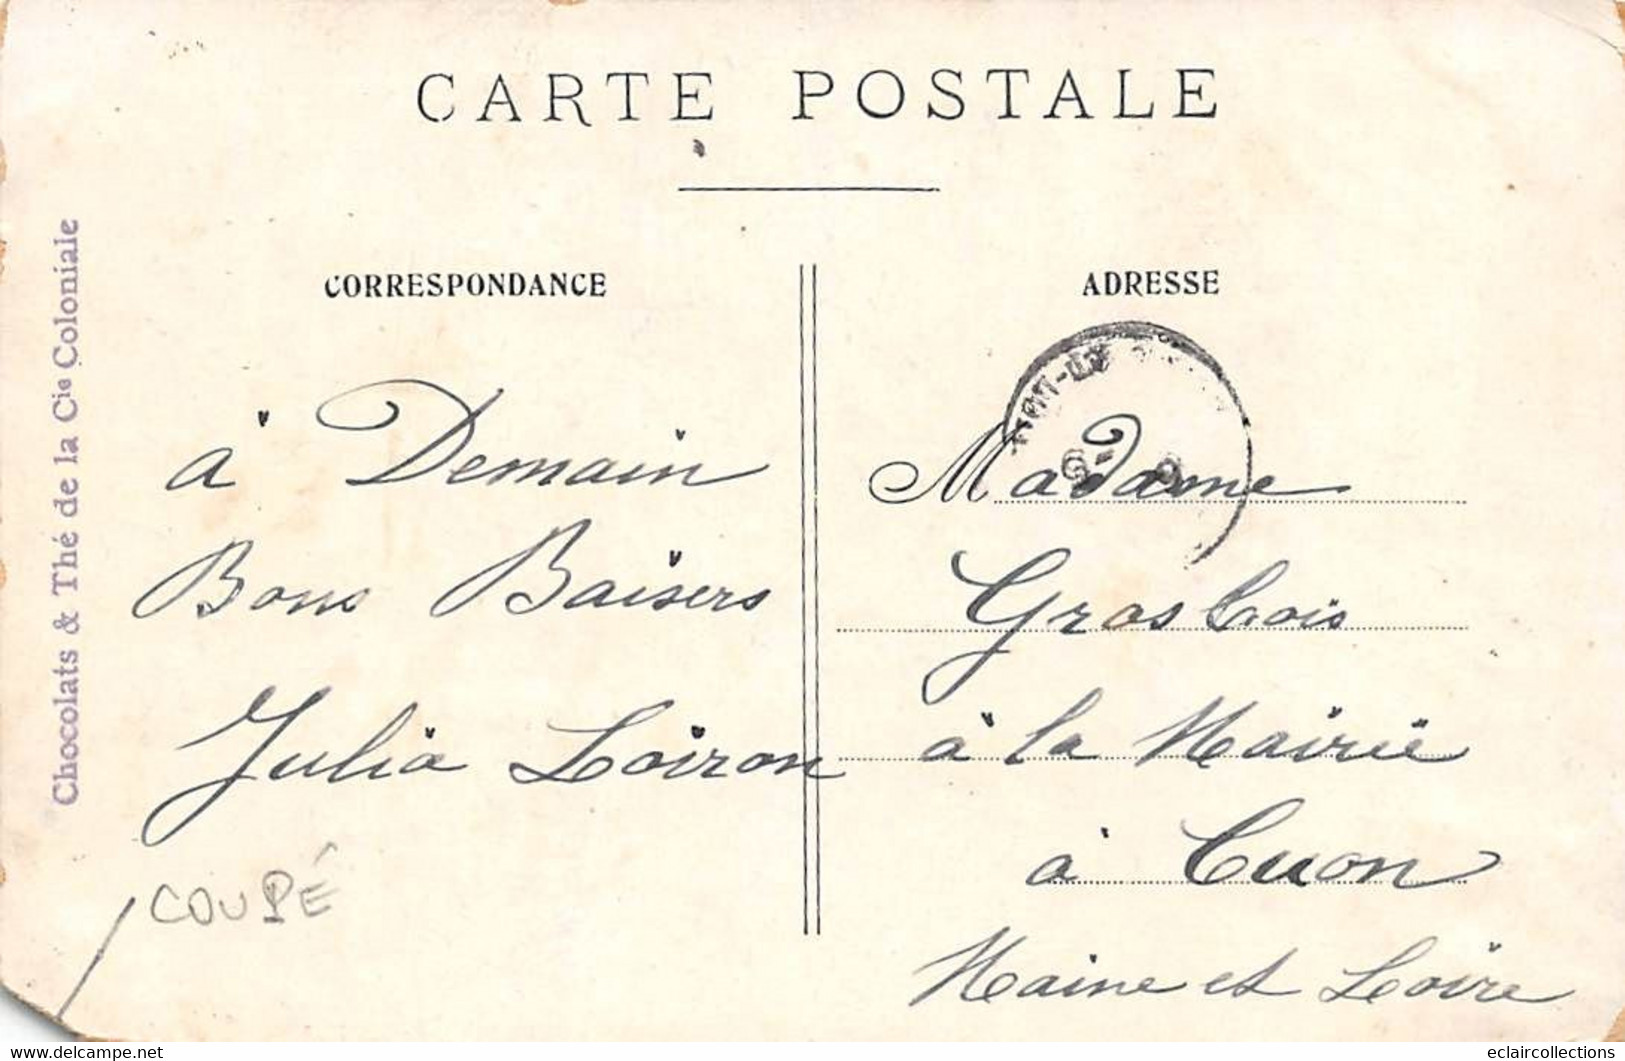 CARTE POSTALE
CORRESPONDANCE
ADRESSE
Chocolats & Thé de la Cie Coloniale
à Demain
Bons Baisers
Julia Loiron
COUPÉ
Madame
Grosbois
à la Mairie
à Cuon
Maine et Loire
eclaircollections